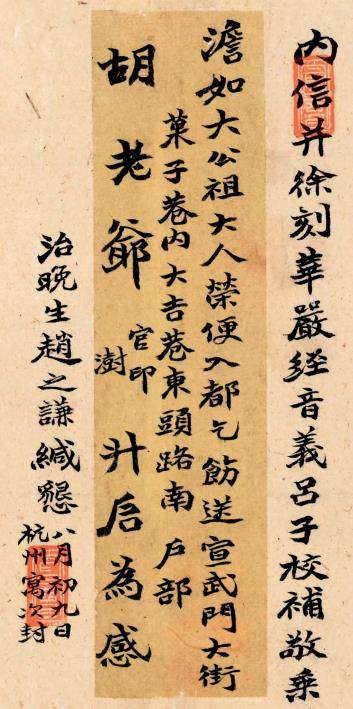 内信并徐刻華嚴經音義呂子校補敬乗
澹如大公祖大人榮便入都乞飭送宣武門大街
菓子巷内大吉巷東頭路南戶部
胡老爺官印澍升启為感
治晚生趙之謙緘懇八月初九日
杭州寓次封